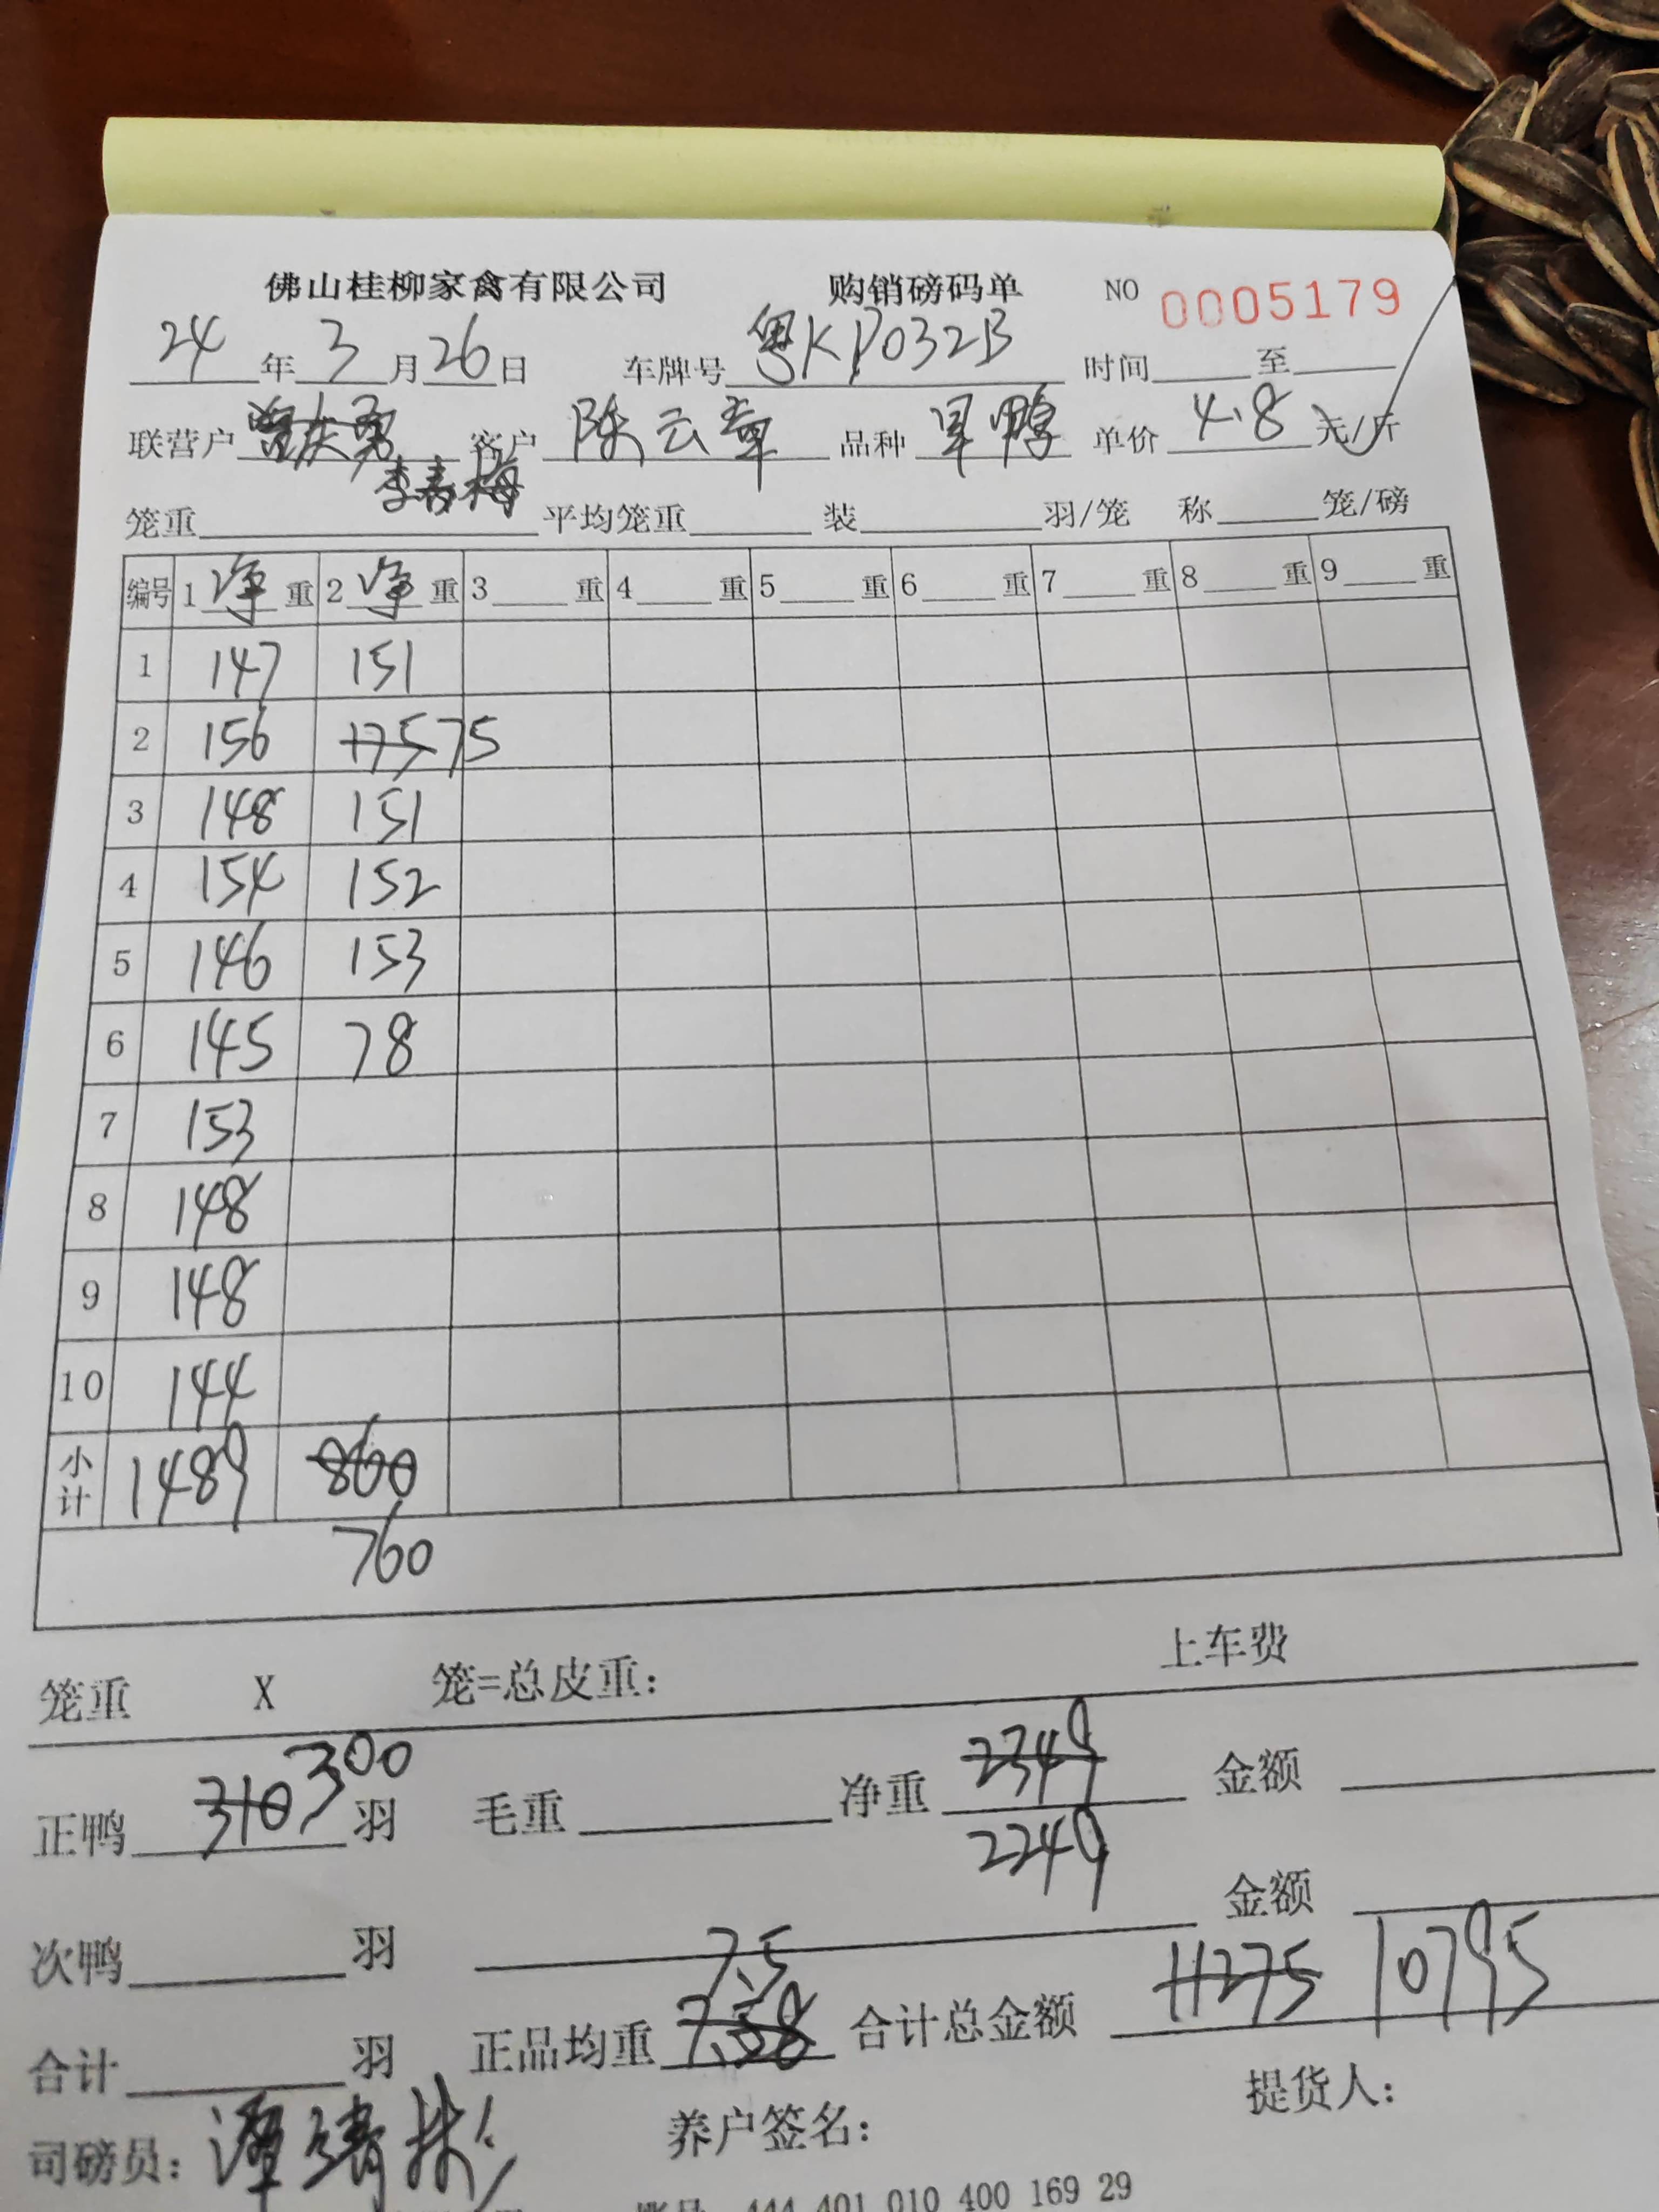 佛山桂柳家禽有限公司 购销磅码单 NO 0005179
24年3月26日 车牌号粤KP032B 时间 至
联营户 客户陈云章 品种旱鸭 单价4.8元/斤
李春梅
笼重 平均笼重 装 羽/笼 称 笼/磅
编号 1净重 2净重 3重 4重 5重 6重 7重 8重 9重
1 147 151
2 156 175 75
3 148 151
4 154 152
5 146 153
6 145 78
7 153
8 148
9 148
10 144
小计 1489 860
760
笼重 X 笼=总皮重: 上车费
正鸭310 300羽 毛重 净重2349 金额
2249
次鸭 羽 金额
7.5
合计 羽 正品均重7.58 合计总金额11275 10795
司磅员: 养户签名: 提货人:
444 401 010 400 169 29